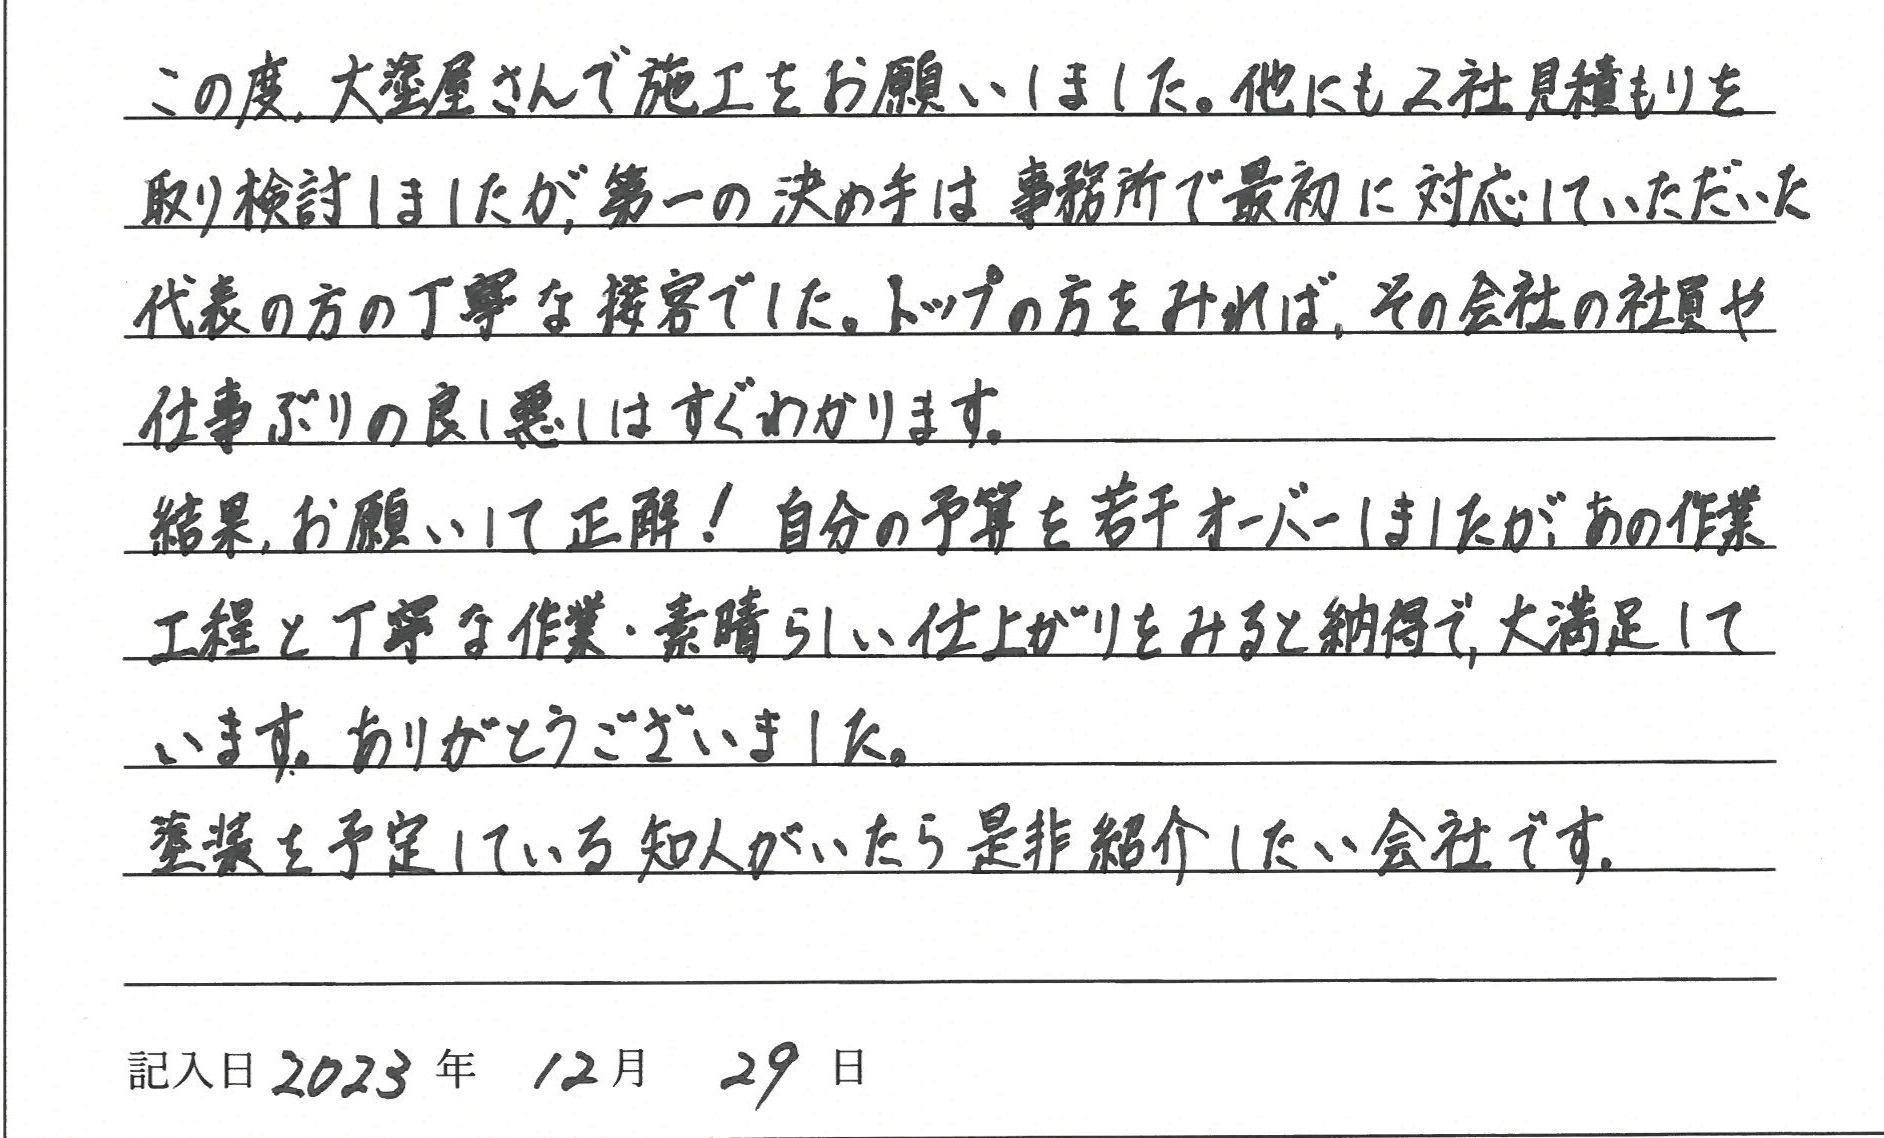 この度、大塗屋さんで施工をお願いしました。他にも2社見積もりを
取り検討しましたが、第一の決め手は事務所で最初に対応していただいた
代表の方の丁寧な接客でした。トップの方をみれば、その会社の社員や
仕事ぶりの良し悪しはすぐわかります。
結果、お願いして正解！ 自分の予算を若干オーバーしましたが、あの作業
工程と丁寧な作業・素晴らしい仕上がりをみると納得で、大満足して
います。ありがとうございました。
塗装を予定している知人がいたら是非紹介したい会社です。
記入日 2023 年 12 月 29 日